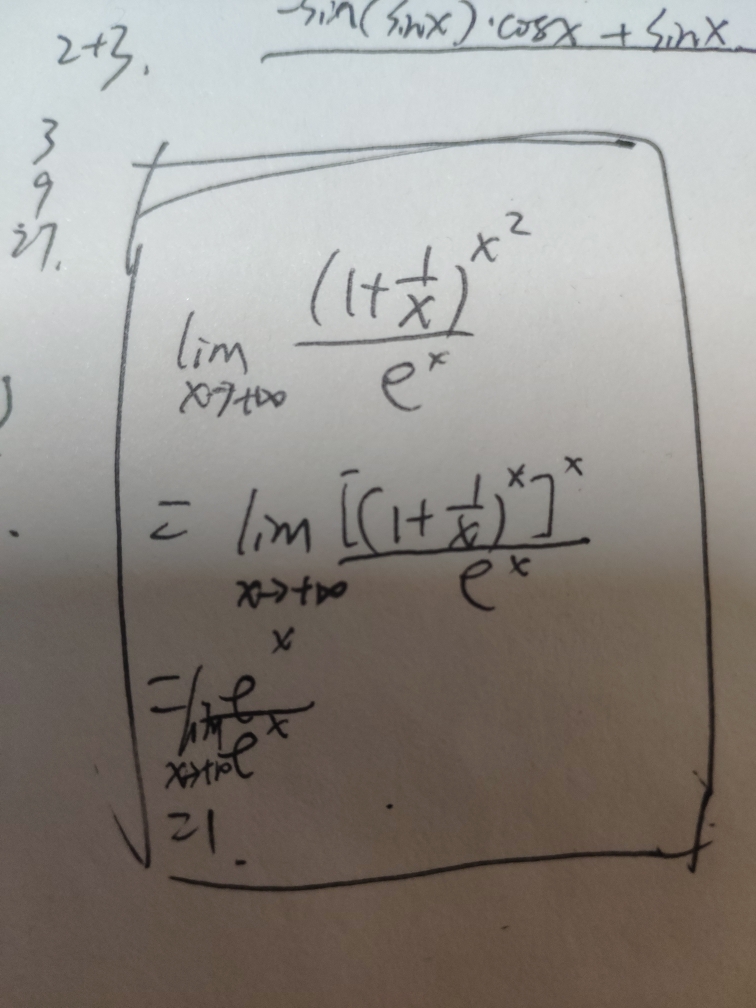 -sin(sinx)·cosx + sinx
2+3.
3
9
27.
lim x→+∞ (1+1/x)^x^2 / e^x
= lim x→+∞ [(1+1/x)^x]^x / e^x
= lim x→+∞ e^x / e^x
=1.